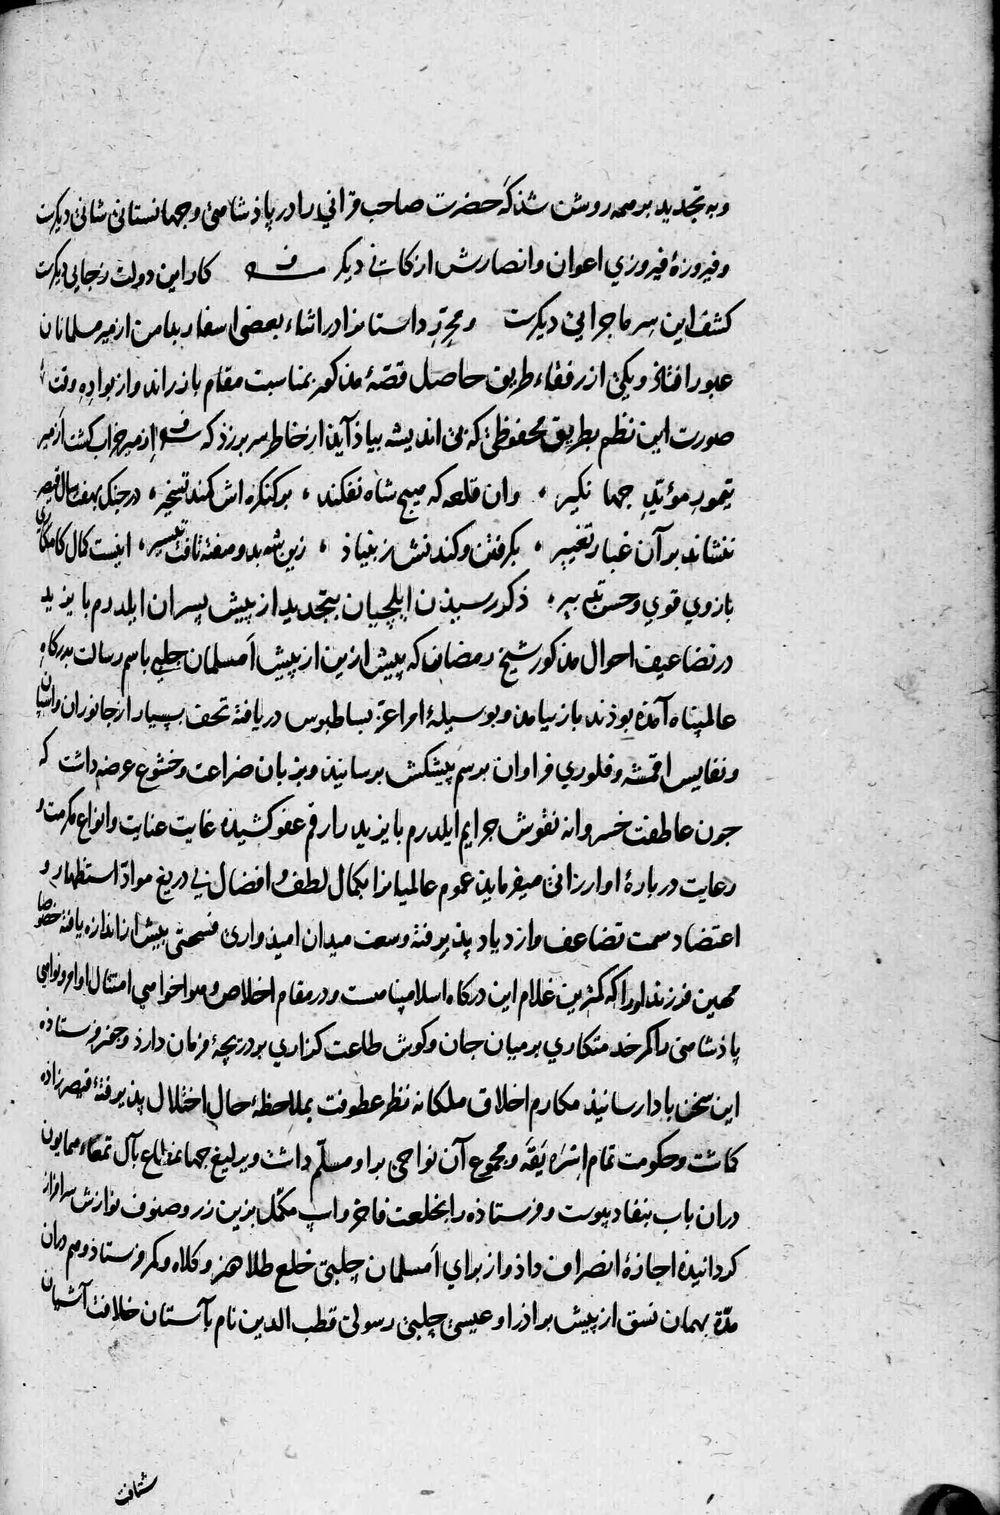 وبه تجدید بر همه روشن شد که حضرت صاحب قرانی را در پاذشاهی و جهانستانی شانی دیکرست
و فیروزۀ فیروزی اعوان و انصارش از کانی دیکر کار این دولت ز جایی دیکرست
کشف این سر ماجرایی دیکرست و محرّر داستانرا در اثناء بعضی اسفار بعامن ازمیر مسلمانان
عبور افتاذ ویکی از رفقاء طریق حاصل قصّۀ مذکور بمناسبت مقام باز راند و از بوادهِ وقت
صورت این نظم بطریق محفوظی که بی اندیشه بیاذ آید از خاطر سر برزذ که ازمیر خراب کشت ازمیر
تیمورِ مؤیّدِ جهانکیر ، وان قلعه که هیچ شاه نفکند ، بر کنکره اش کمند تسخیر ، در جنک بهفت سال قیصر
ننشاند بر آن غبار تغییر ، بکرفتن و کندنش ز بنیاذ ، زین شه بدو هفته یافت تیسیر ، اینست کمال کامکاری
بازوی قوی و حسن تدبیر ، ذکر رسیذن ایلچیان بتجدید از پیش پسران ایلدرم بایزید
در تضاعیف احوال مذکور شیخ رمضان که پیش ازین از پیش اَمسلمان جلبی باسم رسالت بدرکاه
عالمپناه آمذه بوذند باز بیامذ و بوسیلۀ امرا عزّ بساطبوس دریافتۀ تحف بسیار از جانوران و اسپان
و نفایس اقمشه و فلوری فراوان برسم پیشکش برسانیذ و بزبان ضراعت و خشوع عرضه داشت که
جون عاطفت خسروانه نقوش جرایم ایلدرم بایزید را رقم عفو کشیده غایت عنایت و انواع مکرمت و
رعایت دربارۀ او ارزانی میفرماید عموم عالمیانرا بکمال لطف و افضال بی دریغ موادّ استظهار و
اعتضاد سمت تضاعف و ازدیاد پذیرفته و سعت میدان امیذواری فسحتی بیش از اندازه یافته خصوصا
مهین فرزند او را که کمترین غلام این درکاه اسلامپناهست و در مقام اخلاص و هواخواهی امتثال اوامر و نواهی
پاذشاهی را کمر خدمتکاری بر میان جان و کوش طاعت کزاری بر دریچۀ فرمان دارذ و جفر فرستاذه
این سخن بادا رسانیذ مکارم اخلاق ملکانه نظر عطوفت بملاحظۀ حالِ اختلال پذیرفتۀ قیصرزاده
کماشت و حکومت تمام اِسْرَه یَقَه و مجموع آن نواحی برو مسلّم داشت و یرلیغ جهانمطاع بآل تمغاء همایون
دران باب بنفاد پیوست و فرستاذه را بخلعت فاخر و اسپ مکمّل بزین زر و صنوف نوازش سرافراز
کردانیده اجازۀ انصراف داذ و از برای اَمسلمان جلبی خلع طلادوز و کلاه و کمر فرستاذ و هم دران
مدّة بهمان نسق از پیش براذر او عیسی چلبی رسولی قطب الدین نام بآستان خلافت آشیان
شتافت